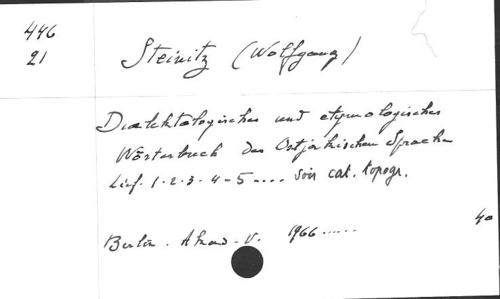 446
21
Steinitz (Wolfgang)
Dialektologisches und etymologisches
Wörterbuch der Ostjakischen Sprache
Lief. 1-2-3-4-5.... Voir cat. topogr.
Berlin. Akad.-V. 1966.....
4o